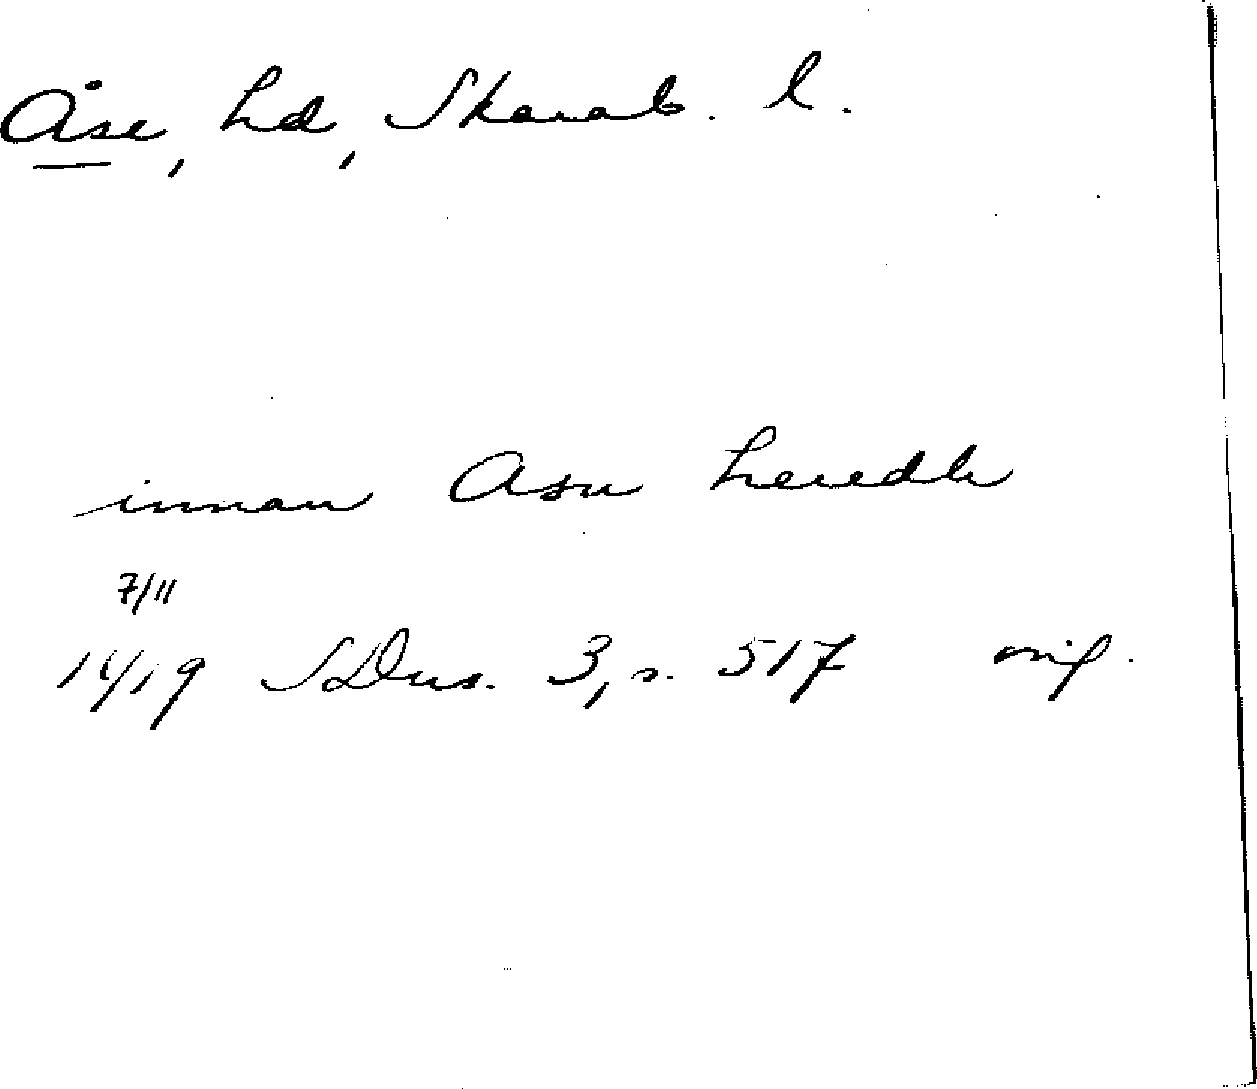 Åse, hd, Skarab. l.
innan Asu heredhe
7/11
1419 SDns. 3, s. 517 orig.